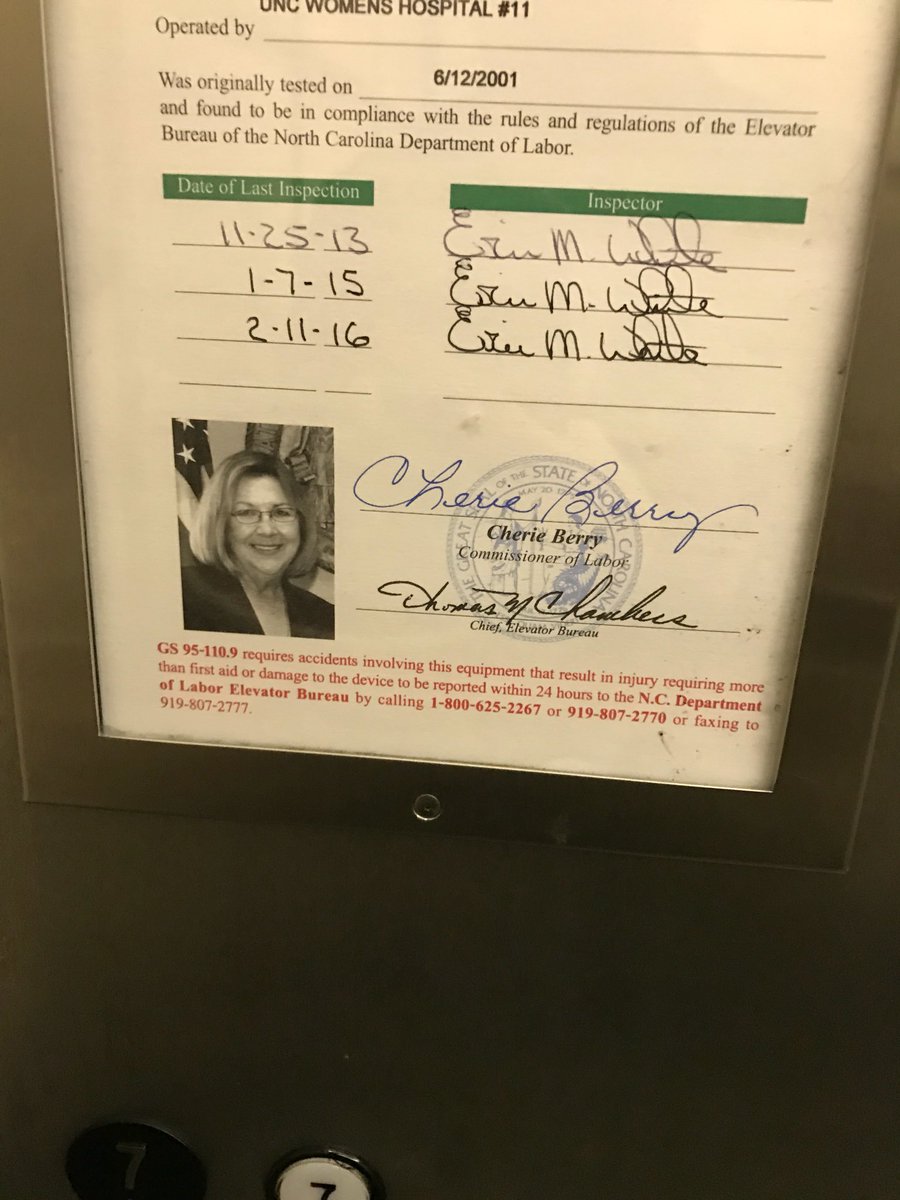 UNC WOMENS HOSPITAL #11
Operated by
Was originally tested on 6/12/2001
and found to be in compliance with the rules and regulations of the Elevator
Bureau of the North Carolina Department of Labor.
Date of Last Inspection Inspector
11-25-13 Erin M. White
1-7-15 Erin M. White
2-11-16 Erin M. White
THE GREAT SEAL OF THE STATE OF NORTH CAROLINA
MAY 20
Cherie Berry
Cherie Berry
Commissioner of Labor
Thomas N Chambers
Chief, Elevator Bureau
GS 95-110.9 requires accidents involving this equipment that result in injury requiring more
than first aid or damage to the device to be reported within 24 hours to the N.C. Department
of Labor Elevator Bureau by calling 1-800-625-2267 or 919-807-2770 or faxing to
919-807-2777.
7 7